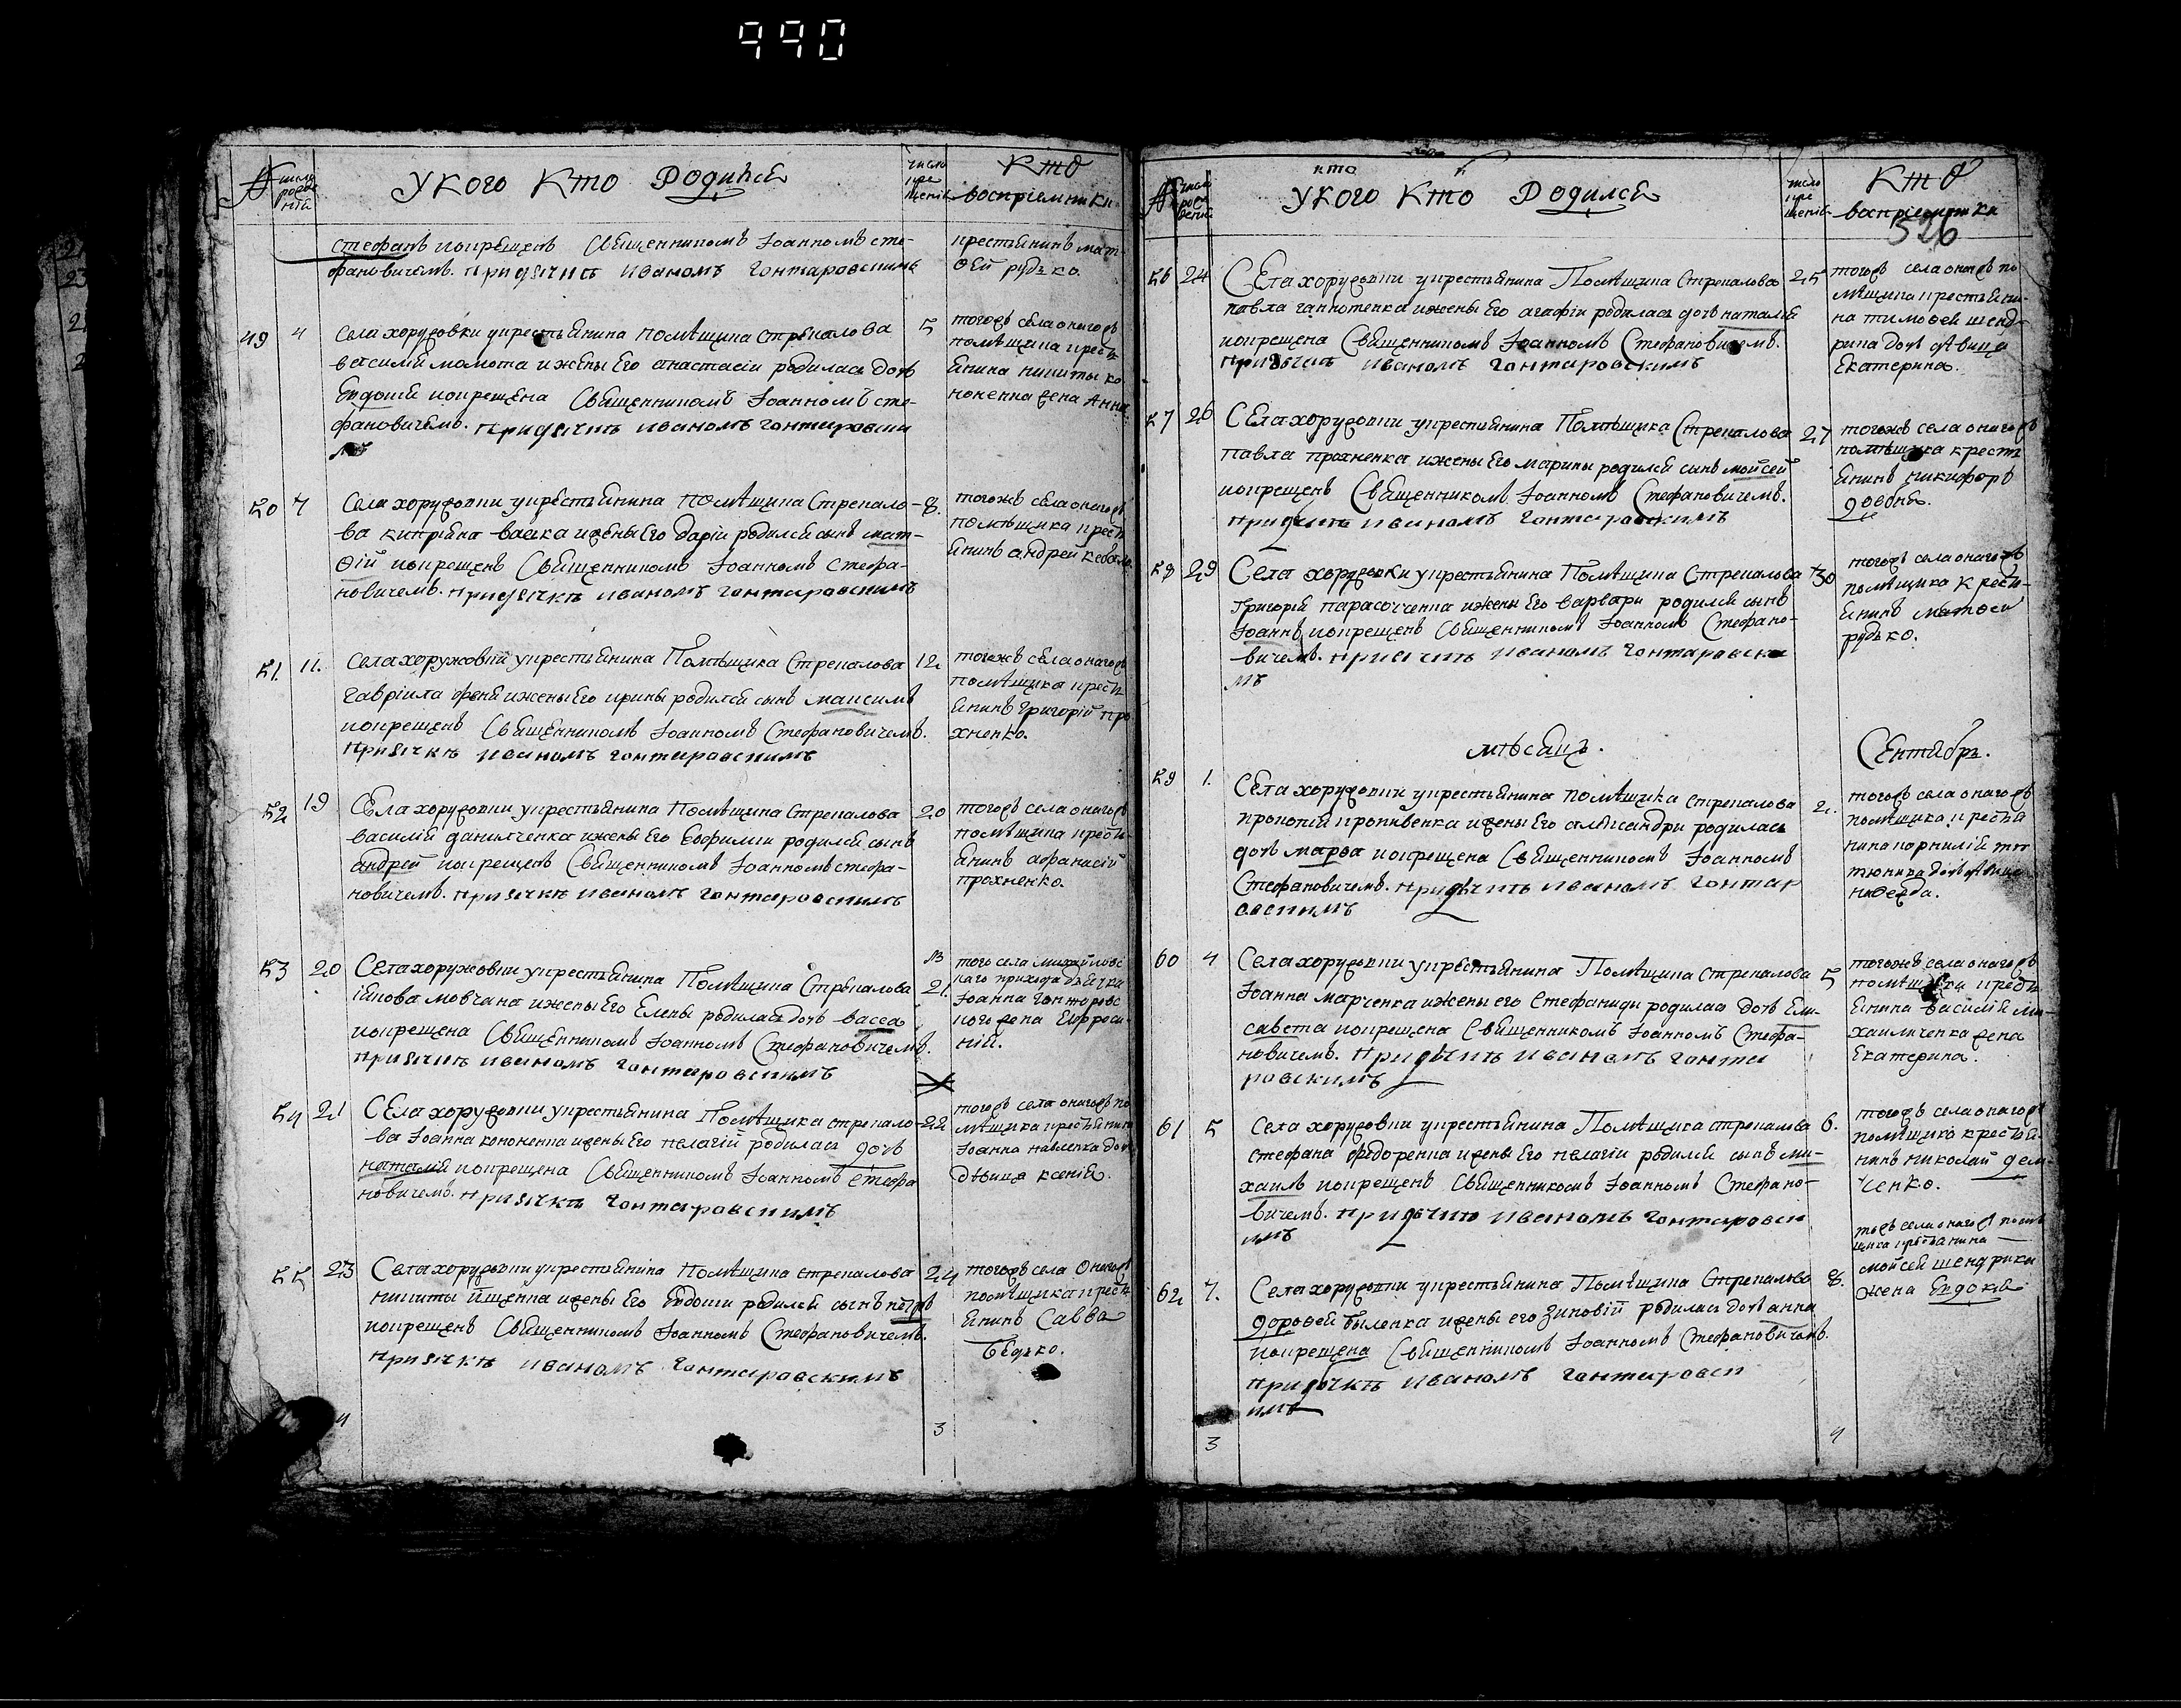 990
№ число рожденій
У кого кто родился
число крещенія
Кто
воспріемники
Стефанъ покрещенъ Священникомъ Іоанномъ Сте-
фановичемъ. При дячкѣ Иваномъ Гонтаровскимъ
крестьянинъ Мат-
ѳей Рудько.
49 4 Села Хоружовки у крестьянина помѣщика Стрекалова 5
Василія Момота и жены его Анастасіи родилась дочь
Евдокія покрещена Священникомъ Іоанномъ Сте-
фановичемъ. При дячкѣ Иваномъ Гонтаровски
мъ
тогожъ села оногожъ
помѣщика кресть
янина Никиты Ко
ноненка жена Анна.
50 7 Села Хоружовки у крестьянина помѣщика Стрекало- 8.
ва Кипріяна Вашка и жены его Даріи родился сынъ Мат-
ѳій покрещенъ Священникомъ Іоанномъ Стефа-
новичемъ. При дячкѣ Иваномъ Гонтаровскимъ
тогожъ села оногожъ
помѣщика кресть
янинъ Андрей
51. 11. Села Хоружовки у крестьянина Помѣщика Стрекалова 12
Гавріила и жены его Ирины родился сынъ Максимъ
покрещенъ Священникомъ Іоанномъ Стефановичемъ.
При дячкѣ Иваномъ Гонтаровскимъ
тогожъ села оногожъ
помѣщика кресть
янинъ Григорій Про
хненко.
52 19 Села Хоружовки у крестьянина Помѣщика Стрекалова 20
Василія Данилченка и жены его Евфиміи родился сынъ
Андрей покрещенъ Священникомъ Іоанномъ Стефа-
новичемъ. При дячкѣ Иваномъ Гонтаровскимъ
тогожъ села оногожъ
помѣщика кресть
янинъ Афанасій
Прохненко.
53 20 Села Хоружовки у крестьянина Помѣщика Стрекалова 21.
Іякова Мовчана и жены его Елены родилась дочь Васса
покрещена Священникомъ Іоанномъ Стефановичемъ.
При дячкѣ Иваномъ Гонтаровскимъ
того села Михайловс
каго прихода дьячка
Іоанна Гонтаровс
кого жена Евфроси-
нія.
54 21 Села Хоружовки у крестьянина Помѣщика Стрекало- 22
ва Іоанна Кононенка и жены его Пелагіи родилась дочь
Наталія покрещена Священникомъ Іоанномъ Стефа
новичемъ. При дячкѣ Гонтаровскимъ
тогожъ села оногожъ по
мѣщика крестьянина
Іоанна Павленка дочь
дѣвица Ксенія.
55 23 Села Хоружовки у крестьянина Помѣщика Стрекалова 24
Никиты Ищенка и жены его Евдокіи родился сынъ Петръ
покрещенъ Священникомъ Іоанномъ Стефановичемъ.
При дячкѣ Иваномъ Гонтаровскимъ
тогожъ села оногожъ
помѣщика кресть
янинъ Савва
Бѣдько.
4
3
кто
№ число рожденій
У кого кто родился
число крещенія
Кто
воспріемники
326
56 24 Села Хоружовки у крестьянина Помѣщика Стрекалова 25
Павла Ганнотенка и жены его Агафіи родилась дочь Наталія
покрещена Священникомъ Іоанномъ Стефановичемъ.
При дячкѣ Иваномъ Гонтаровскимъ
тогожъ села оногожъ по
мѣщика крестьяни-
на Тимоѳея Шенд-
рика дочь дѣвица
Екатерина.
57 26 Села Хоружовки у крестьянина Помѣщика Стрекалова 27
Павла Прохненка и жены его Марины родился сынъ Мойсей
покрещенъ Священникомъ Іоанномъ Стефановичемъ.
При дячкѣ Иваномъ Гонтаровскимъ
тогожъ села оногожъ
помѣщика кресть
янинъ Никифоръ
58 29 Села Хоружовки у крестьянина Помѣщика Стрекалова 30
Григорія Парасоченка и жены его Варвари родился сынъ
Іоаннъ покрещенъ Священникомъ Іоанномъ Стефано-
вичемъ. При дячкѣ Иваномъ Гонтаровски
мъ
тогожъ села оногожъ
помѣщика кресть-
янинъ Матвей
Рудько.
мѣсяцъ. Сентябрь.
59 1. Села Хоружовки у крестьянина помѣщика Стрекалова 2.
Прокопія Прокивенка и жены его Александри родилась
дочь Марѳа покрещена Священникомъ Іоанномъ
Стефановичемъ. При дячкѣ Иваномъ Гонтар
овскимъ
тогожъ села оногожъ
помѣщика крестья
нина Корнилія Тю
тюника дочь дѣвица
Надежда.
60 4 Села Хоружовки у крестьянина Помѣщика Стрекалова 5
Іоанна Марченка и жены его Стефаниди родилась дочь Ели-
савета покрещена Священникомъ Іоанномъ Стефа-
новичемъ. При дячкѣ Иваномъ Гонта
ровскимъ
тогожъ села оногожъ
помѣщика кресть
янина Василія Ми-
хайличенка жена
Екатерина.
61 5 Села Хоружовки у крестьянина Помѣщика Стрекалова 6.
Стефана Федоренка и жены его Пелагіи родился сынъ Ми-
хаилъ покрещенъ Священникомъ Іоанномъ Стефано-
вичемъ. При дячкѣ Иваномъ Гонтаровск
имъ
тогожъ села оногожъ
помѣщика крестья-
нинъ Николай Дем-
ченко.
62 7. Села Хоружовки у крестьянина Помѣщика Стрекалова 8.
Дорофея Быленка и жены его Зиновіи родилась дочь Анна
покрещена Священникомъ Іоанномъ Стефановичемъ.
При дячкѣ Иваномъ Гонтаровск
имъ
тогожъ села оногожъ помѣ
щика крестьянина
Мойсея Шендрика
жена Евдокія
3
4